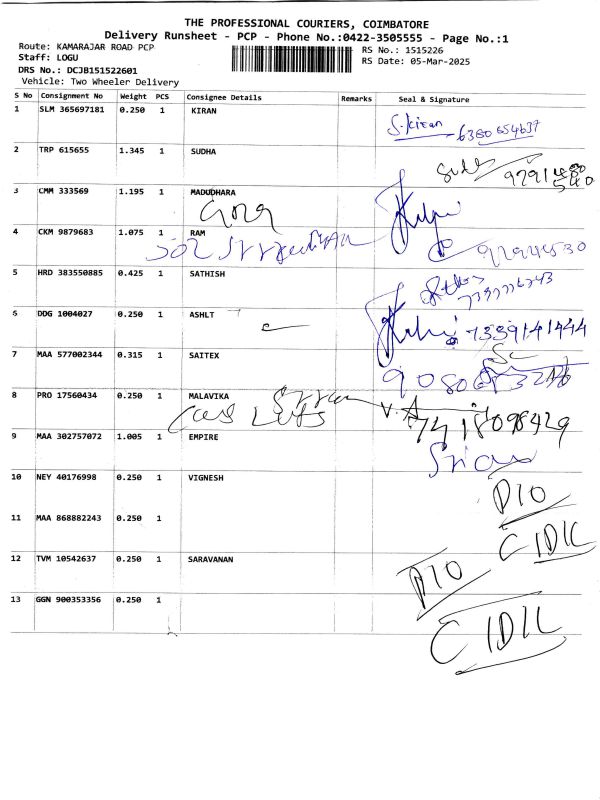 THE PROFESSIONAL COURIERS, COIMBATORE
Delivery Runsheet - PCP - Phone No.:0422-3505555 - Page No.:1
Route: KAMARAJAR ROAD PCP
RS No.: 1515226
Staff: LOGU
RS Date: 05-Mar-2025
DRS No.: DCJB151522601
Vehicle: Two Wheeler Delivery
S No Consignment No Weight PCS Consignee Details Remarks Seal & Signature
1 SLM 365697181 0.250 1 KIRAN
S.Kiran 6380654637
2 TRP 615655 1.345 1 SUDHA
3 CMM 333569 1.195 1 MADUDHARA
4 CKM 9879683 1.075 1 RAM
5 HRD 383550885 0.425 1 SATHISH
6 DDG 1004027 0.250 1 ASHLT
7339141444
7 MAA 577002344 0.315 1 SAITEX
8 PRO 17560434 0.250 1 MALAVIKA
7418098429
9 MAA 302757072 1.005 1 EMPIRE
10 NEY 40176998 0.250 1 VIGNESH
11 MAA 868882243 0.250 1
12 TVM 10542637 0.250 1 SARAVANAN
13 GGN 900353356 0.250 1